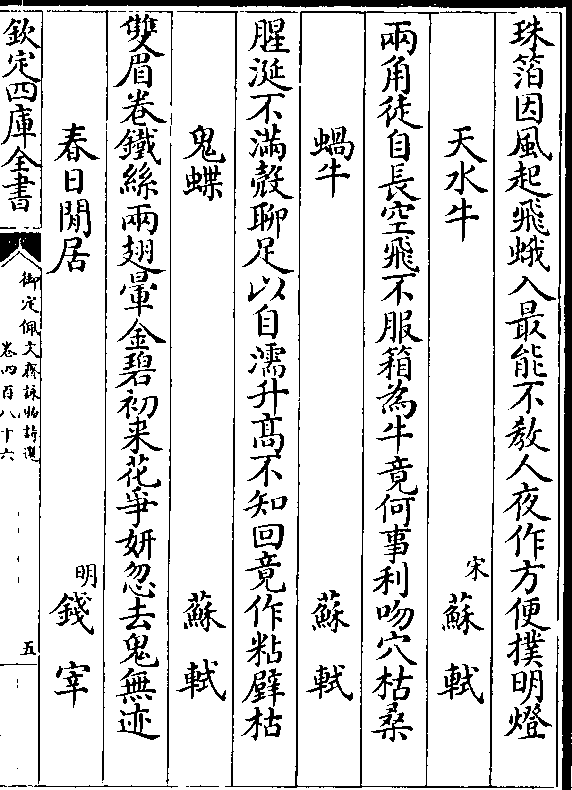 珠箔因風起飛蛾入最能不教人夜作方便撲明燈
天水牛　宋蘇軾
兩角徒自長空飛不服箱為牛竟何事利吻穴枯桑
蝸牛　蘇軾
腥涎不滿殼聊足以自濡升髙不知回竟作粘壁枯
鬼蝶　蘇軾
雙眉卷鐵絲兩翅暈金碧初来花爭妍忽去鬼無迹
春日閒居　明錢宰
欽定四庫全書
御定佩文齋詠物詩選
卷四百八十六
五